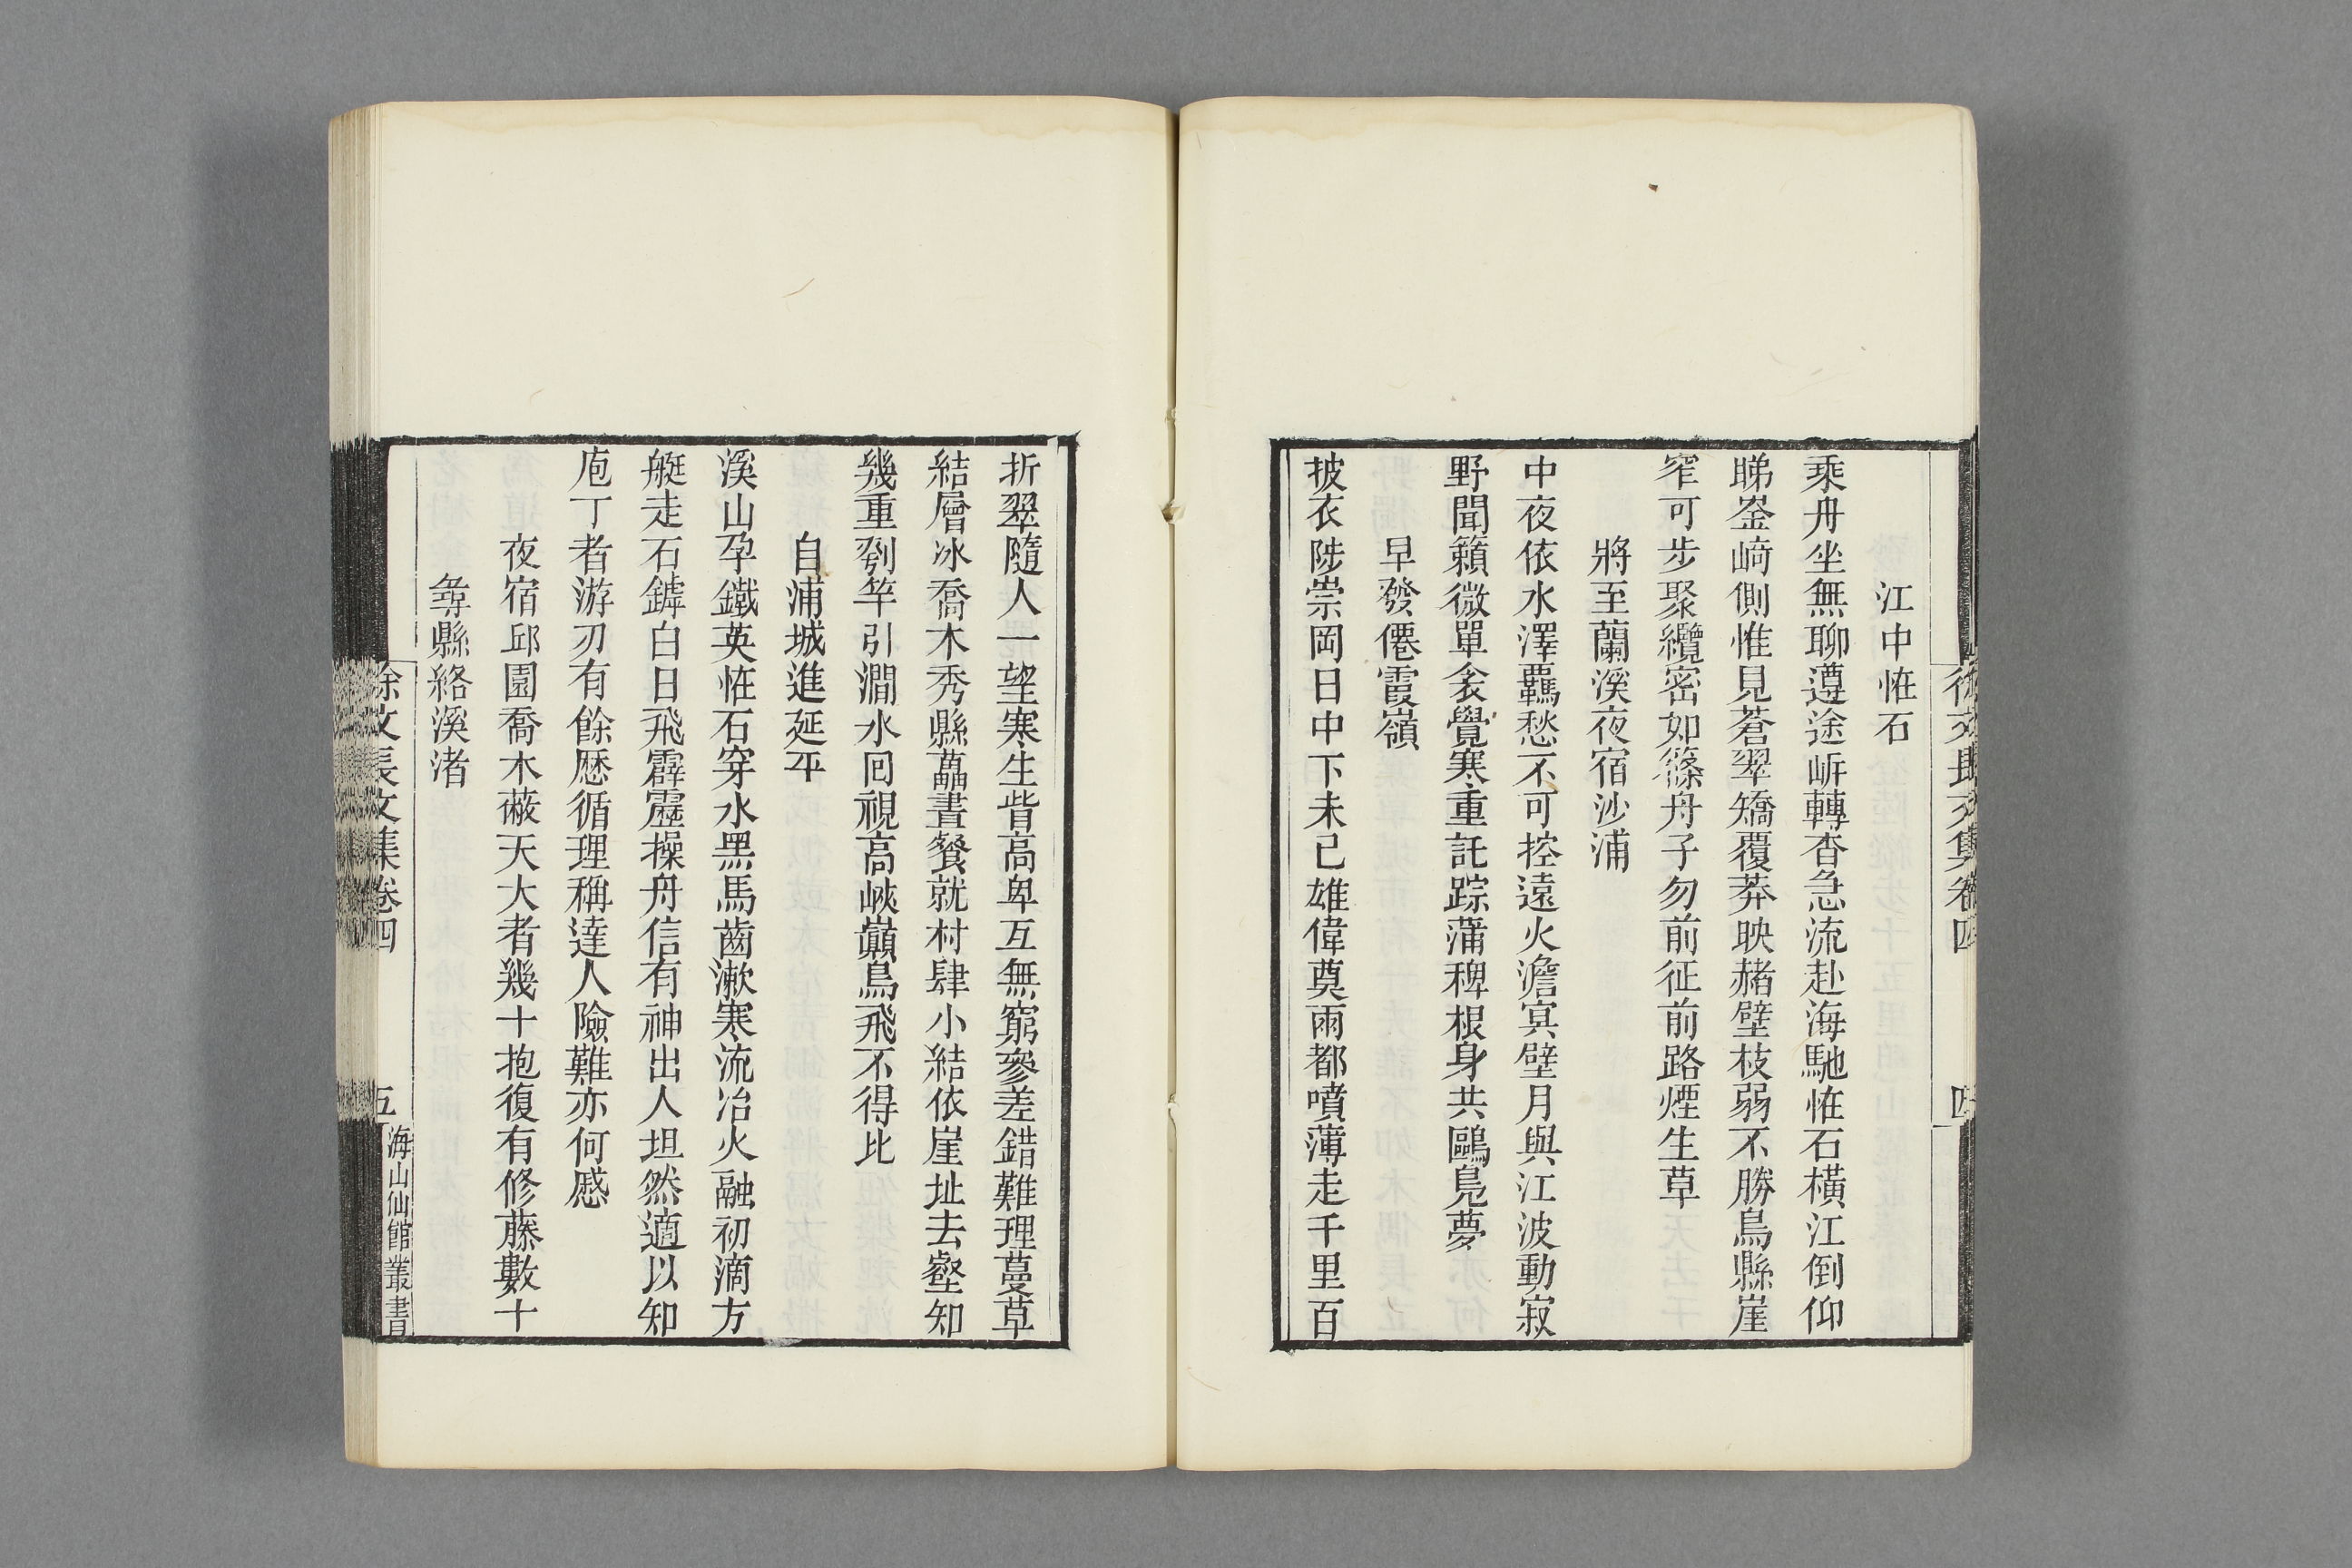 徐文長文集卷四
四
江中恠石
乘舟坐無聊遵途㟁轉杳急流赴海馳恠石橫江倒仰
睇崟崎側惟見蒼翠矯覆莽映赭壁枝弱不勝鳥縣崖
窄可步聚纜密如篠舟子勿前征前路煙生草
將至蘭溪夜宿沙浦
中夜依水澤羈愁不可控遠火澹冥壁月與江波動寂
野聞籟微單衾覺寒重託踪蒲稗根身共鷗鳧夢
早發僊霞嶺
披衣陟崇岡日中下未已雄偉奠雨都噴薄走千里百
折翠隨人一望寒生眥高卑互無窮參差錯難理蔓草
結層冰喬木秀縣藟晝餐就村肆小結依崖址去壑知
幾重刳竿引澗水回視高峽巔鳥飛不得比
自浦城進延平
溪山孕鐵英恠石穿水黑馬齒漱寒流冶火融初滴方
艇走石罅白日飛霹靂操舟信有神出人坦然適以知
庖丁者游刃有餘歷循理稱達人險難亦何慼
夜宿邱園喬木蔽天大者幾十抱復有修藤數十
尋縣絡溪渚
徐文長文集卷四
五
海山仙館叢書